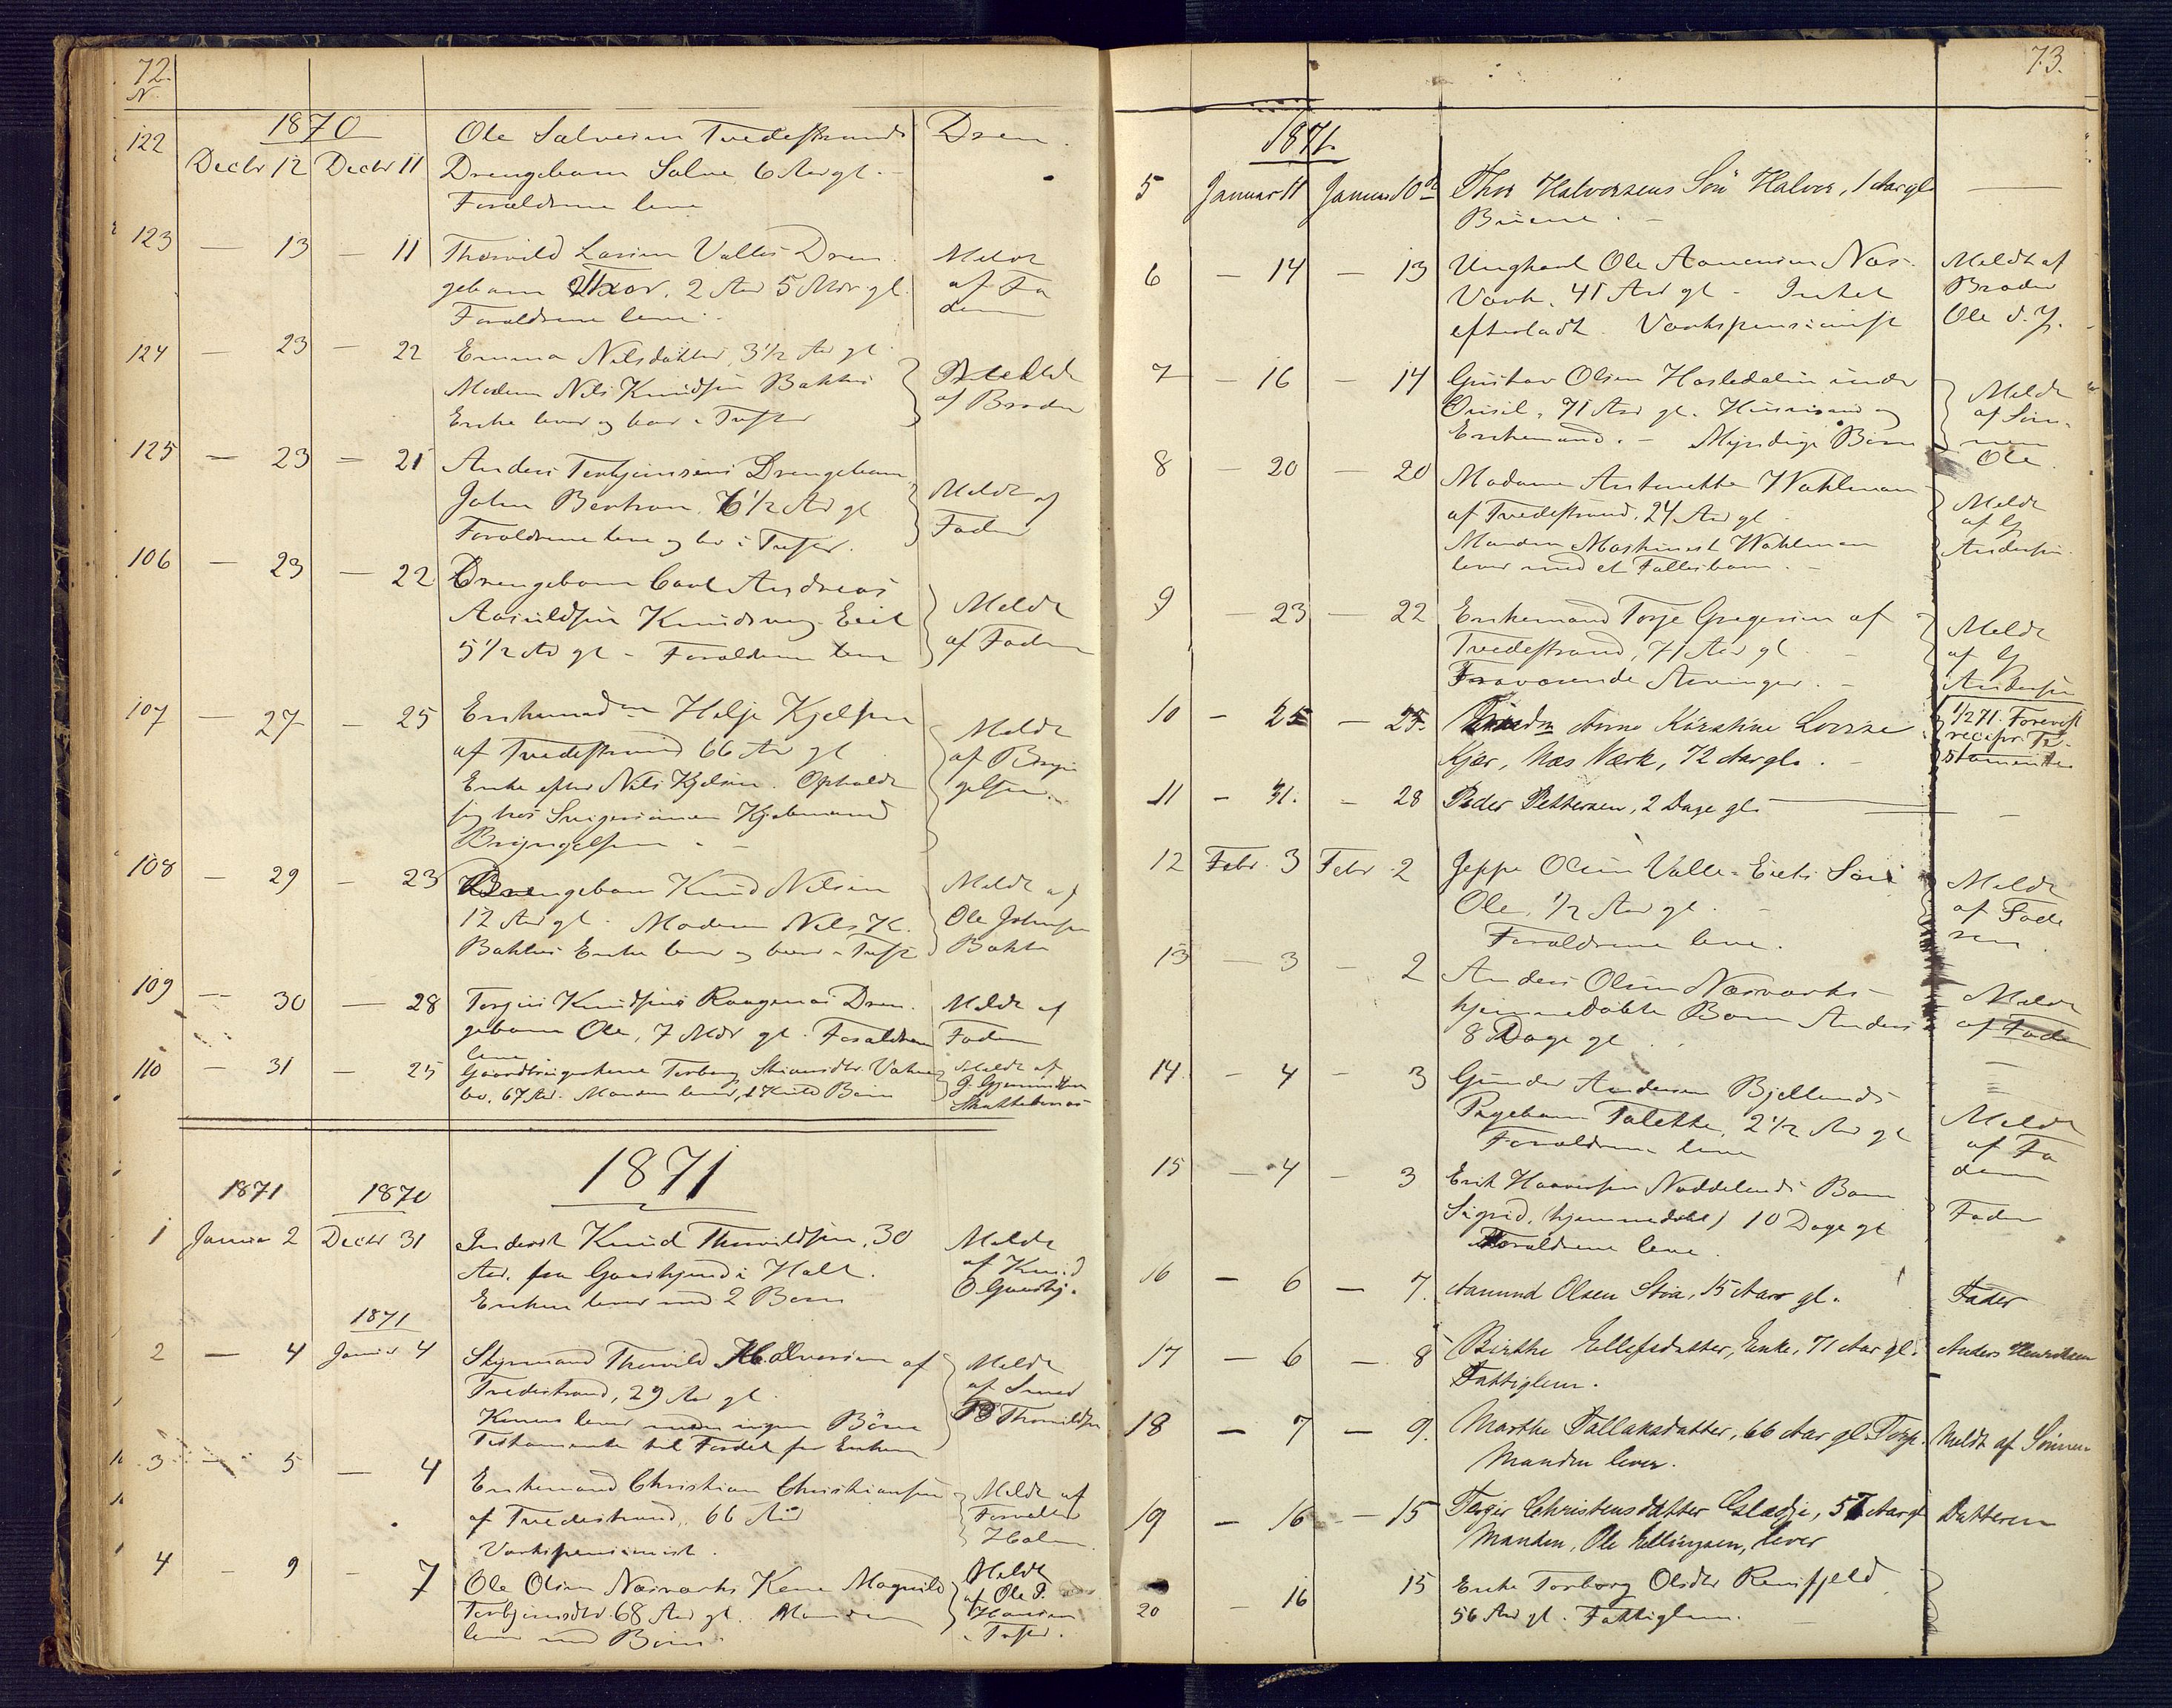 72.
N.
1870
122 Decbr 12 Decbr 11 Ole Salvesen Tvedestrands
Drengebarn Salve 6 Aar gl.
Forældrene leve
123 — 13 — 11 Thorvild Larsen Valles Dren-
gebarn Thor. 2 Aar 5 Mdr gl.
Forældrene leve.
Meldt
af Fa
deren
124 — 23 — 22 Emma Nilsdatter, 3 1/2 Aar gl
Moderen Nils Knudsen Bakkes
Enke lever og boer i
Meldt
af Broder
125 — 23 — 21 Anders Terkjelsens Drengebarn
John Bentson 6 1/2 Aar gl
Forældrene leve og bo i
Meldt af
Fader
106 — 23 — 22 Drengebarn Carl Andreas
Knudsen Eiet
5 1/2 Aar gl - Forældrene leve
Meldt
af Faderen
107 — 27 — 25 Enkemadam Helje Kjelsen
af Tvedestrand 66 Aar gl
Enke efter Nils Kjelsen. Opholdt
sig hos Svigersønnen Kjøbmand
Bryngelsen
Meldt
af Bryn
gelsen
108 — 29 — 23 Drengebarn Knud Nilsen
12 Aar gl. Moderen Nils K.
Bakkes Enke lever og boer i
Meldt af
Ole Johnsen
Bakke
109 — 30 — 28 Terjes Knudsens Dren-
gebarn Ole, 7 Mdr gl. Forældrene
leve
Meldt af
Faderen
110 — 31 — 25 Torborg
67 Aar. Manden lever, Børn
Meldt af
1871
1871 1870
1 Januar 2 Decbr 31 Inderst Knud Thorvildsen, 30
Aar, fra i Holt.
Enken lever med 2 Børn
Meldt
af Knud
1871
2 — 4 Januar 4 Styrmand Thorvild Halvorsen af
Tvedestrand, 29 Aar gl.
Konen lever men ingen Børn
Testamente til Fordel for Enken
Meldt
af Smed
Thorvildsen
3 — 5 — 4 Enkemand Christian Christiansen
af Tvedestrand, 66 Aar
Værkspensionist.
Meldt af
Forvalter
Holm
4 - 9 - 7 Ole Olsen Næsværks Kone Magnild
Terkjelsdtr. 68 Aar gl. Manden
lever med Børn
Meldt
af Ole J.
Hansen
73.
1871.
5 Januar 11 Januar 10de Thor Halvorsens Søn Halvor, 1 Aar gl
6 — 14 — 13 Ungkarl Ole Aanensen Næs
Værk, 41 Aar gl - Intet
efterladt. Værkspensionist
Meldt af
Broder
Ole d. y.
7 — 16 — 14 Gustav Olsen Hasledalen under
71 Aar gl. Husmand og
Enkemand. - Myndige Børn
Meldt
af Søn-
nen
Ole
8 — 20 — 20 Madame Antonette Wahlman
af Tvedestrand, 24 Aar gl
Manden Maskinist Wahlman
lever med et Fællesbarn. -
Meldt
af G
Andersen
9 — 23 — 22 Enkemand Torje Gregersen af
Tvedestrand, 71 Aar gl. -
Fraværende Arvinger. -
Meldt
af G
Andersen
10 - 25 - 25. Anne Kirstine Lovise
Kjær, Næs Værk, 72 Aar gl. -
1/2 71. Forevist
recipr. Te-
stamente
11 - 31. - 28 Peder Pettersen, 2 Dage gl.
12 Febr. 3 Febr 2 Jeppe Olsen Valle Eiets Søn
Ole, 1/2 Aar gl. -
Forældrene leve.
Meldt
af Fade
ren.
13 — 3 - 2 Anders Olsen Næsværks
hjemmedøbte Barn Anders
8 Dage gl
Meldt
af Fader
14 - 4 - 3 Gunder Andersen Bjellands
Pigebarn Talette, 2 1/2 Aar gl
Forældrene leve
Meldt
af Fa
deren
15 - 4 - 3 Erik Haaversen Noddelands Barn
Sigrid, (hjemmedøbt) 10 Dage gl
Forældrene leve.
Fader
16 - 6 - 7. Aamund Olsen Stia, 15 Aar gl.
Fader
17 - 6 - 8 Birthe Ellefsdatter, Enke, 71 Aar gl.
Fattiglem.
Anders Henriksen
18 - 7 - 9. Marthe Tallaksdatter, 66 Aar gl. Torp.
Manden lever.
Meldt af Sønnen
19 - 16 - 15 Terjer Christensdatter Gladje, 57 Aar gl
Manden, Ole Ellingsen, lever
Datteren
20 - 16 15 Enke Torborg Olsdtr Rensfjeld
56 Aar gl. Fattiglem.